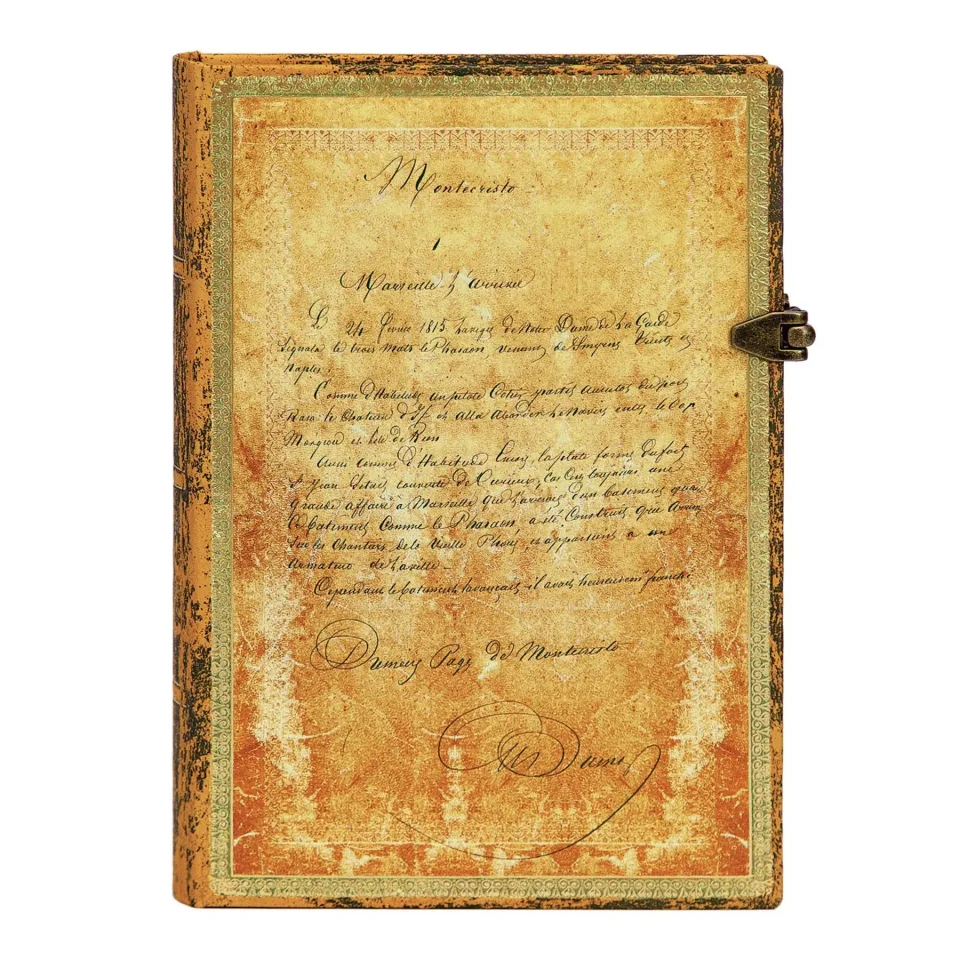 Montecristo
1
Marseille L'arrivée
Le 24 février 1815 la vigie de Notre Dame de La Garde
Signala le trois mats le Pharaon, venant de Smyrne Trieste et
Naples.
Comme d'Habitude un pilote Cotier partit aussitot du port
Rasa le Chateau d'If et alla aborder le Navire entre le Cap
Morgiou et L'ile de Rion
Aussi comme d'Habitude la plate forme du fort
St Jean s'etait couverte de Curieux, car C'est toujours une
grande affaire à Marseille que L'arrivée d'un batiment quand
Ce batiment Comme le Pharaon a été Construit
Sur les Chantiers de la Vieille Phocée, et appartient à un
Armateur de la ville –
Cependant le batiment avançait – il avait heureusement franchi
Dumas Page de Montecristo
Alx Dumas